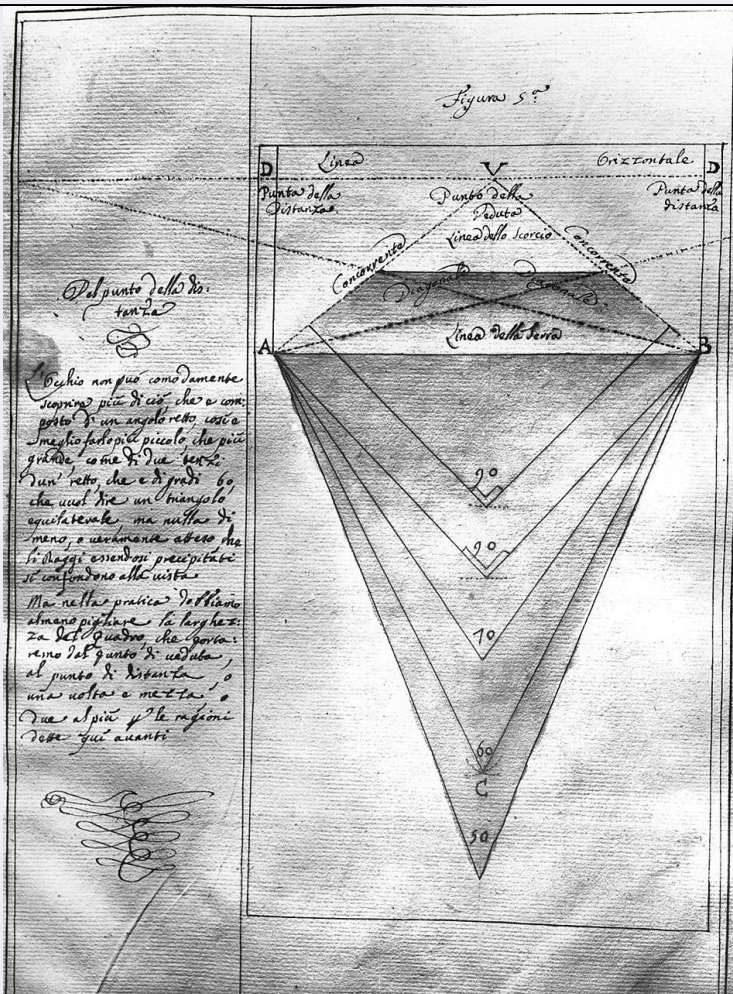 Figura 5.a
D Linea V Orizzontale D
Punta della Distanza.
Punto della Veduta
Punta della distanza
Linea dello Scorcio
Concorrente
Concorrente
Diagonale
Diagonale
A Linea della Terra B
90
90
70
60
C
50
Del punto della dis:
tanza
L'Occhio non può comodamente
scoprire più di ciò che e com:
posto d'un angolo retto, così e
meglio farlo più piccolo, che più
grande come di due terzi
d'un' retto, che e di gradi 60,
che vuol dire un triangolo
equilaterale, ma nulla di
meno, o veramente atteso che
li Raggi essendosi precipitati
si confondono alla vista
Ma nella pratica dobbiamo
almeno pigliare la larghez:
za del Quadro, che porta:
remo dal punto di veduta
al punto di distanza, o
una volta e mezza, o
due al più p le ragioni
dette qui avanti